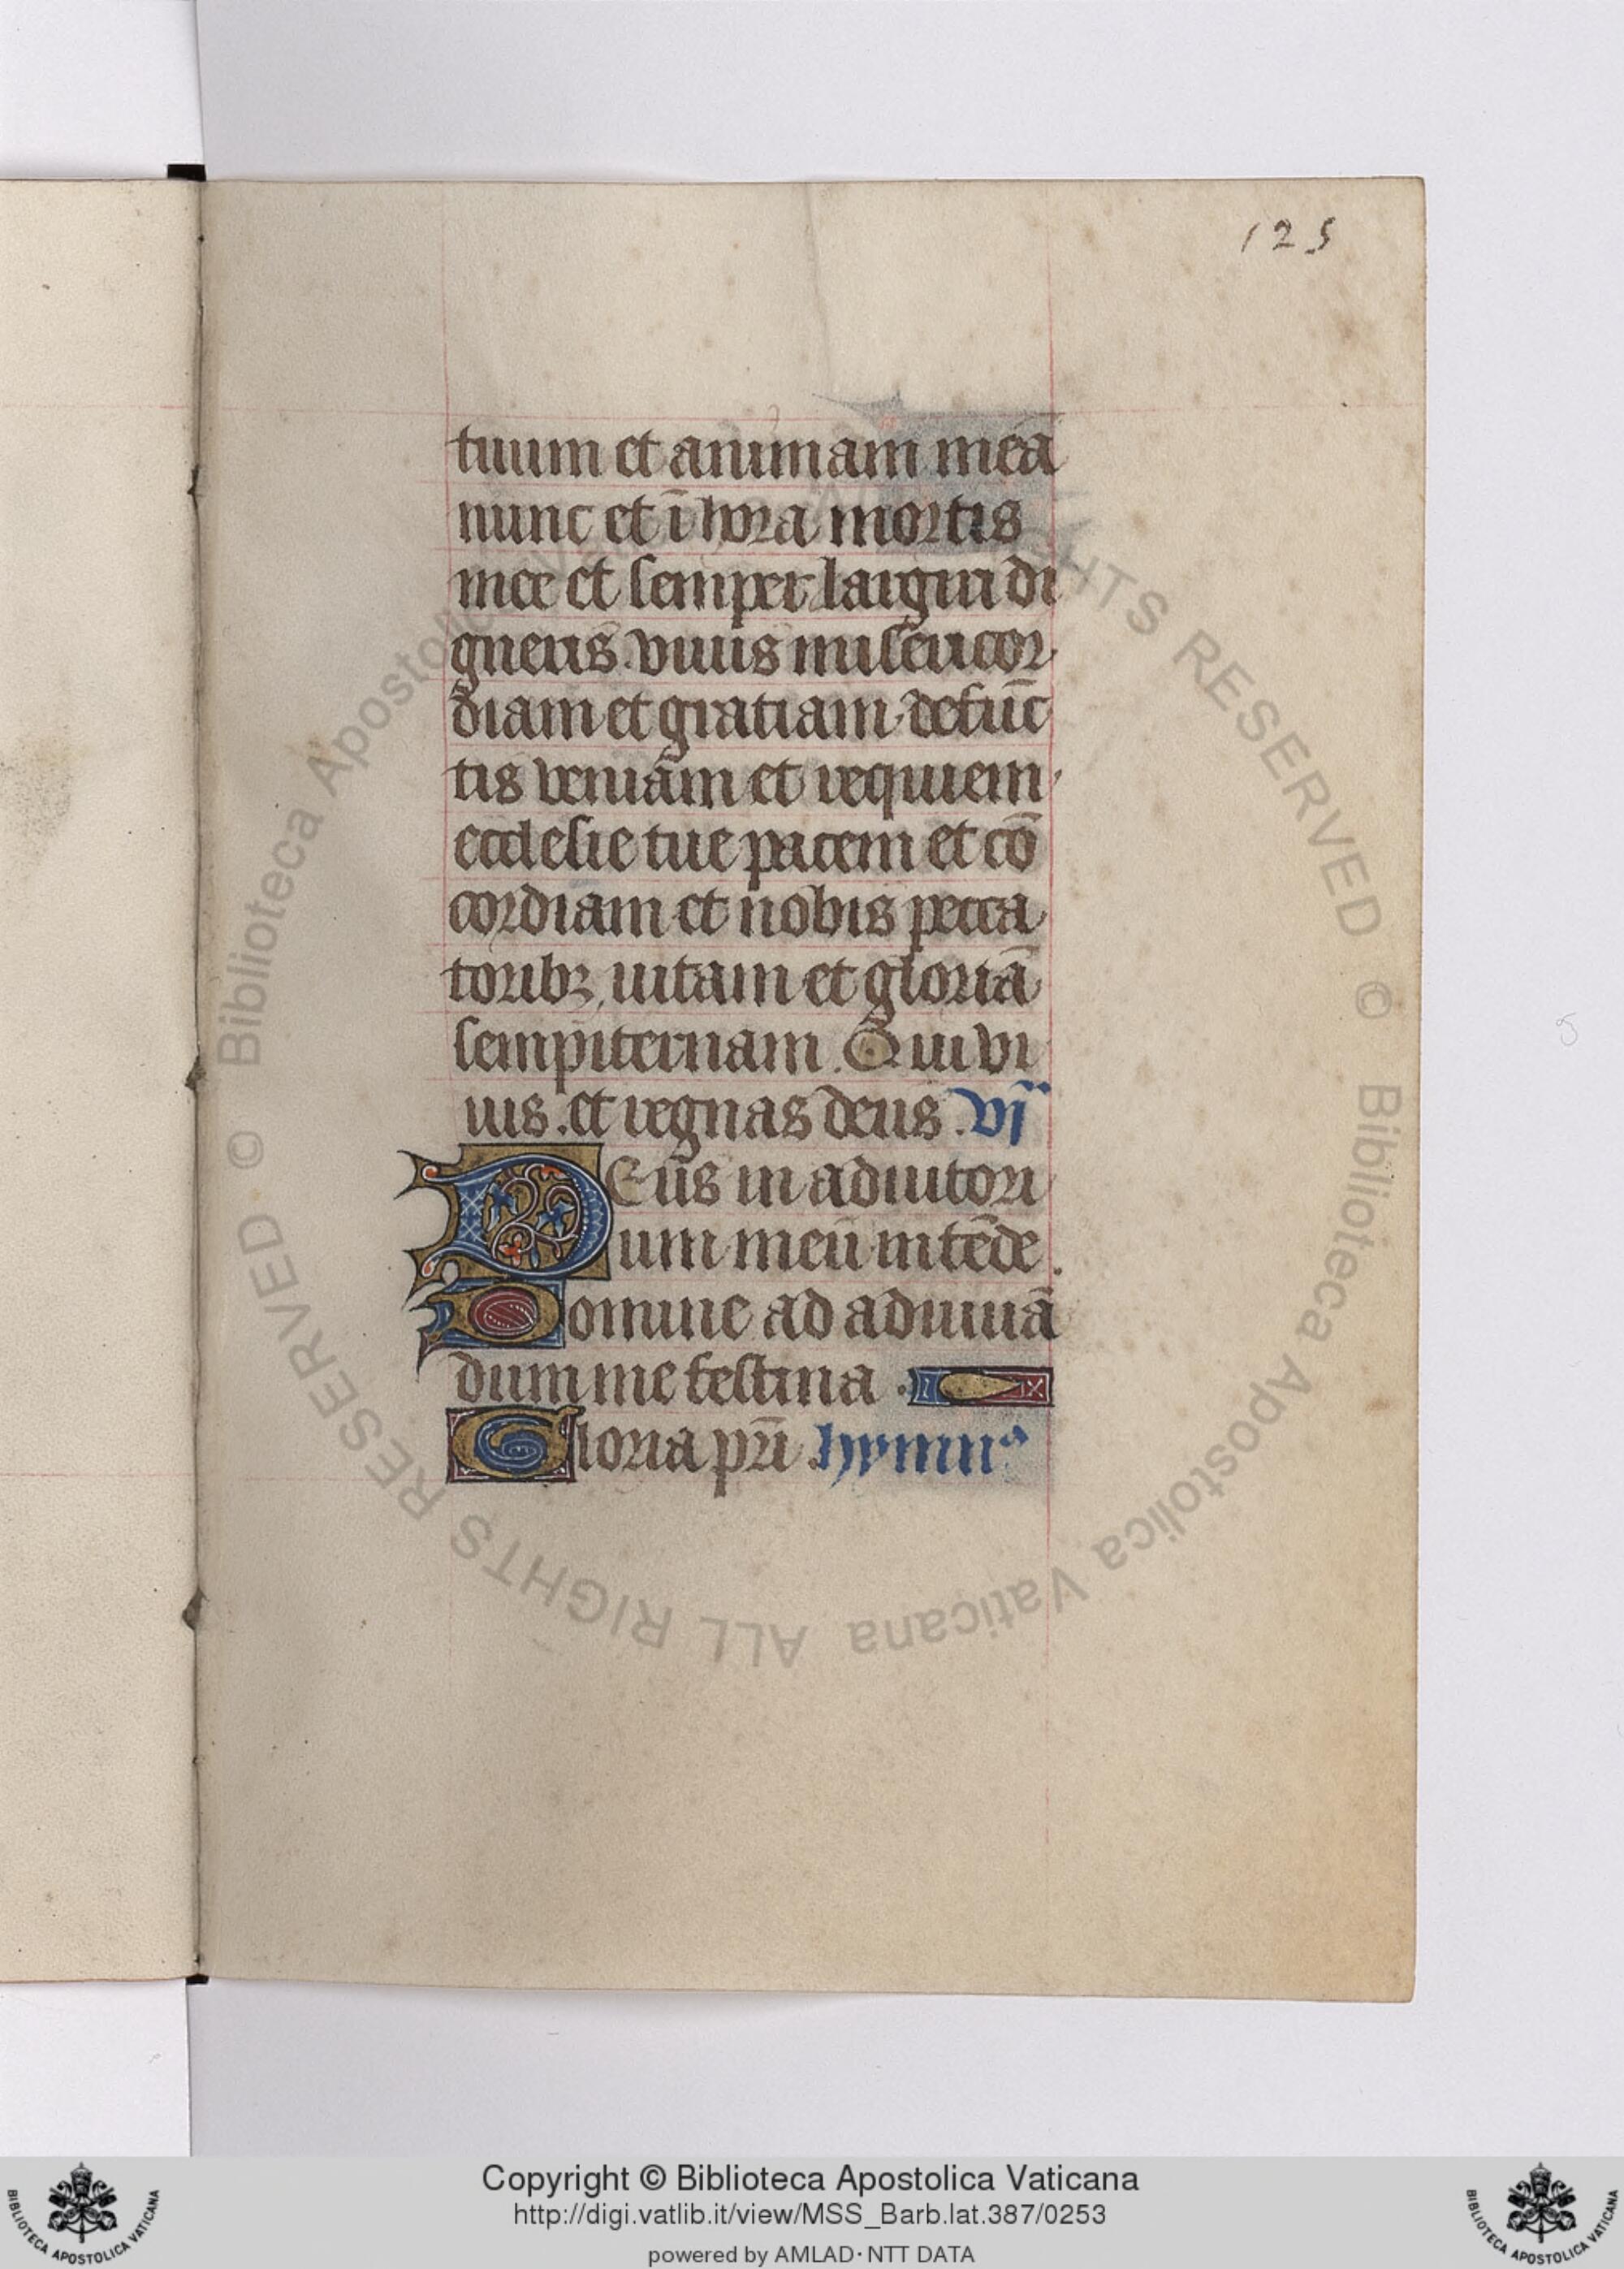 125
tuum et animam meā
nunc et ī hora mortis
mee et semper largiri di
gneris. viuis misericor
diam et gratiam. defūc
tis veniam et requiem
ecclesie tue pacem et cō
cordiam et nobis pecca
toribꝫ uitam et gloriā
sempiternam. Qui vi
uis. et regnas deus. vj
DEus in adiutori
um meū intēde.
Domine ad adiuuā
dum me festina.
Gloria pr̄i. hymnꝰ
© Biblioteca Apostolica Vaticana ALL RIGHTS RESERVED
© Biblioteca Apostolica Vaticana ALL RIGHTS RESERVED
Copyright © Biblioteca Apostolica Vaticana
http://digi.vatlib.it/view/MSS_Barb.lat.387/0253
powered by AMLAD·NTT DATA
BIBLIOTECA APOSTOLICA VATICANA
BIBLIOTECA APOSTOLICA VATICANA